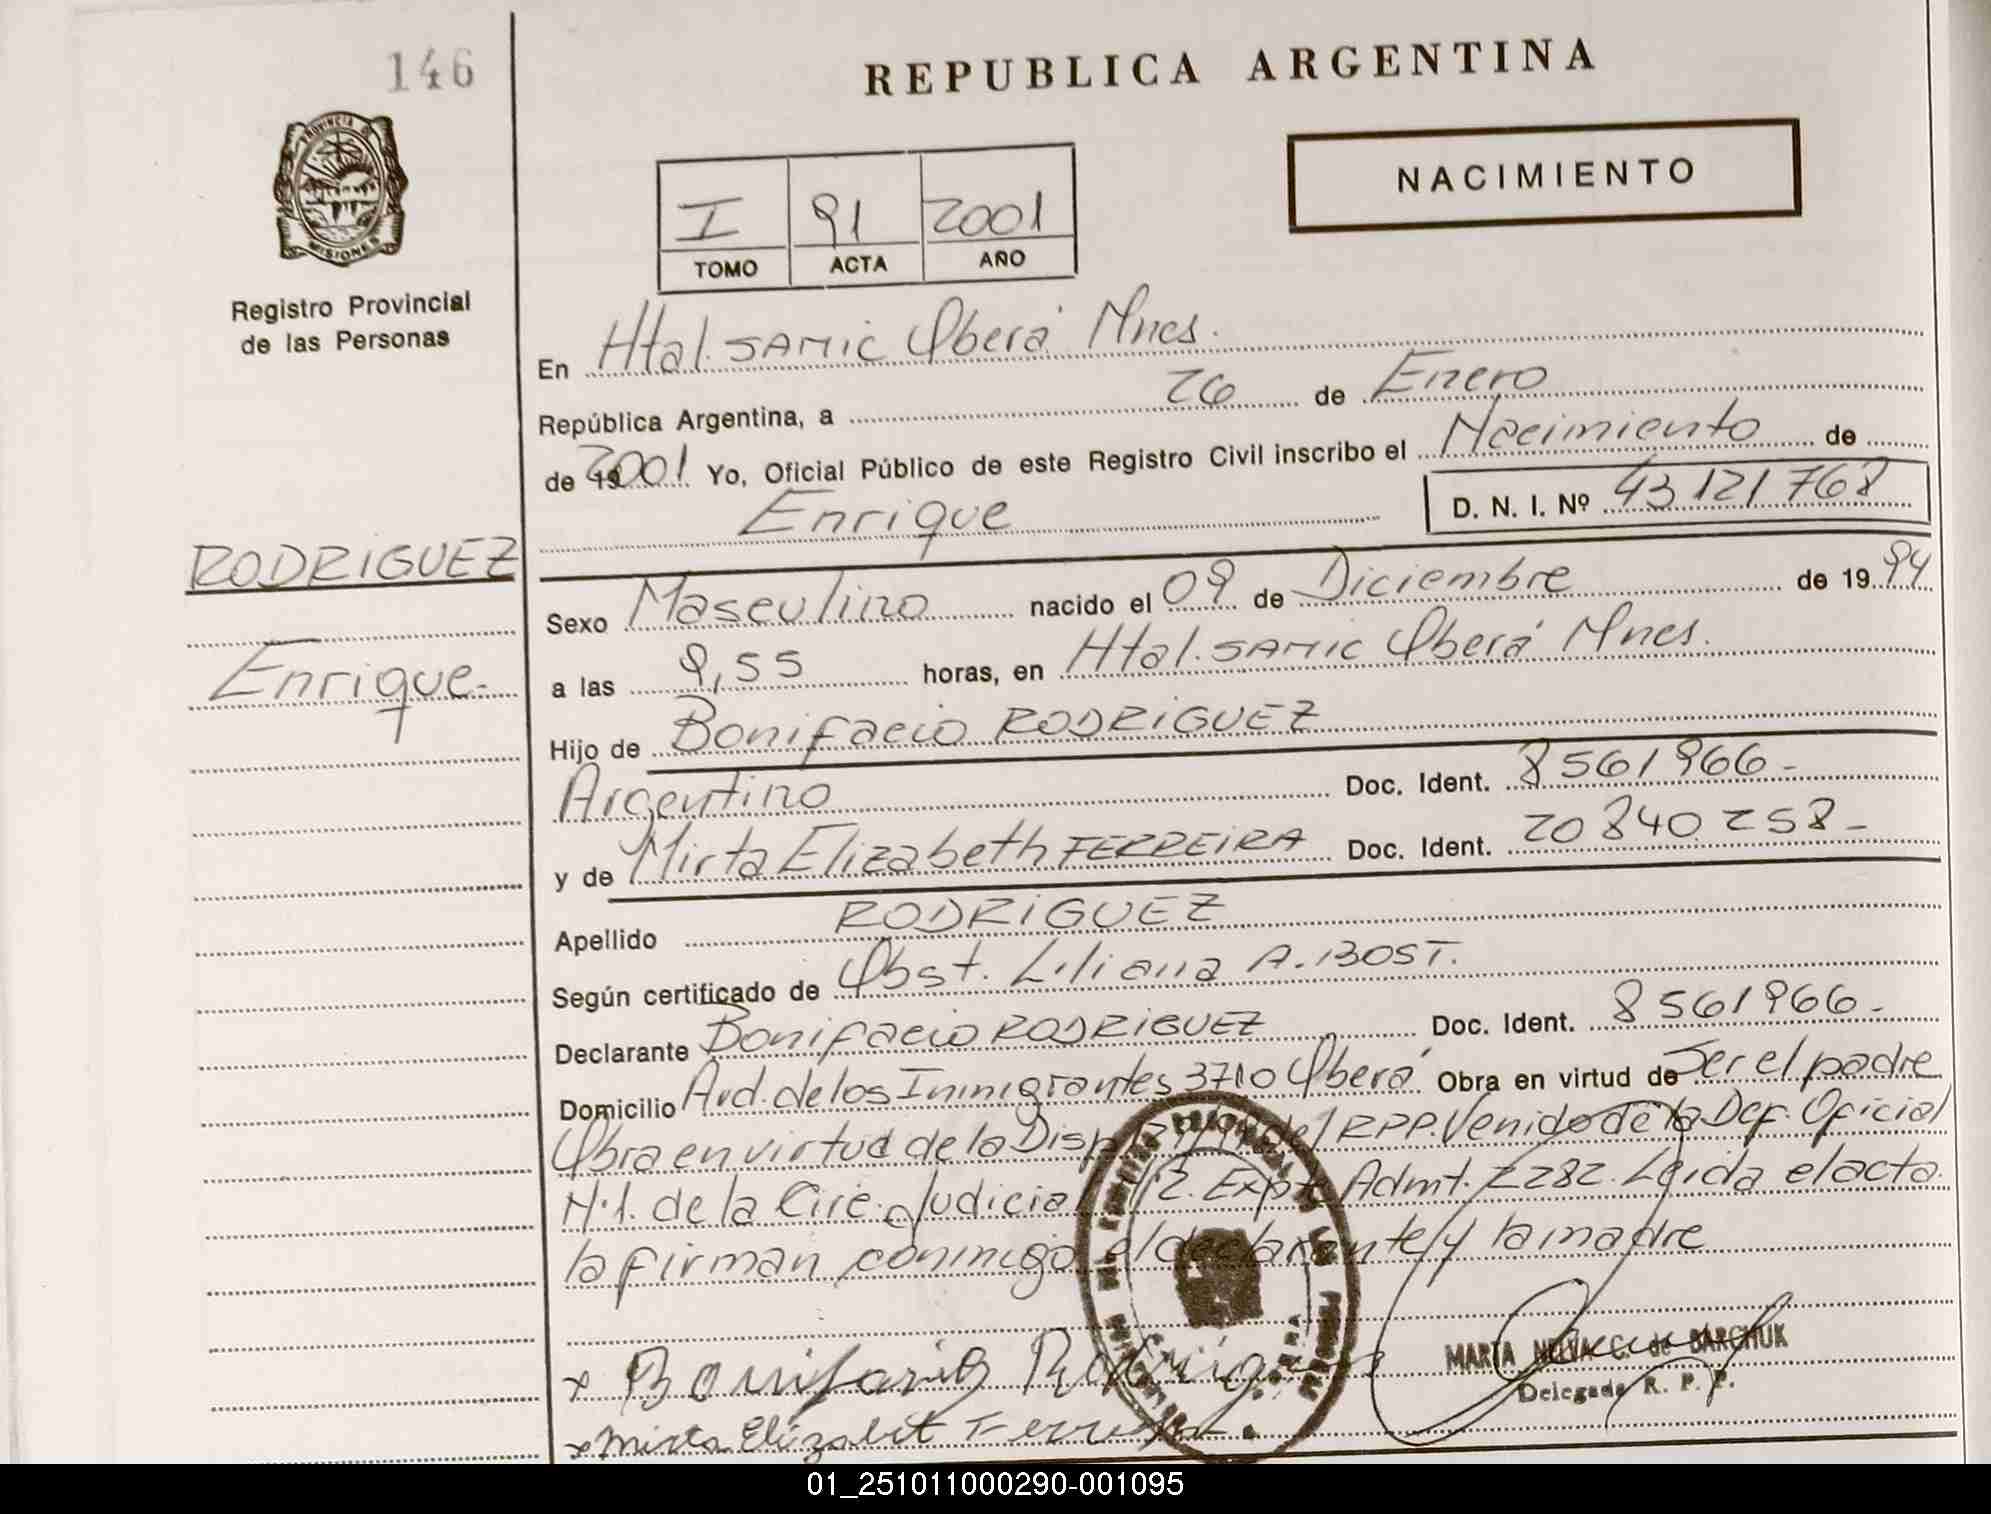 146
REPUBLICA ARGENTINA
NACIMIENTO
PROVINCIA DE
MISIONES
Registro Provincial
de las Personas
I 91 2001
TOMO ACTA AÑO
En Htal. SAMIC Oberá Mnes.
República Argentina, a 26 de Enero
de 192001 Yo, Oficial Público de este Registro Civil inscribo el Nacimiento de
Enrique D. N. I. Nº 43 121 768
RODRIGUEZ
Enrique-
Sexo Masculino nacido el 09 de Diciembre de 19 94
a las 9,55 horas, en Htal. SAMIC Oberá Mnes.
Hijo de Bonifacio RODRIGUEZ
Argentino Doc. Ident. 8561966-
y de Mirta Elizabeth FERREIRA Doc. Ident. 20 840 258-
Apellido RODRIGUEZ
Según certificado de Obst. Liliana A. BOST.
Declarante Bonifacio RODRIGUEZ Doc. Ident. 8561966-
Domicilio Avd. de los Inmigrantes 3710 Oberá Obra en virtud de Ser el padre
Obra en virtud de la Disp. del RPP. Venido de la Def. Oficial
N.1. de la Circ. Judicial Expte Admt. 2282. Leida el acta
la firman conmigo el declarante y la madre
x Bonifacio Rodrigue
MARTA NELVA C. de BARCHUK
Delegada R. P. P.
x Mirta Elizabet Ferreira
01_251011000290-001095